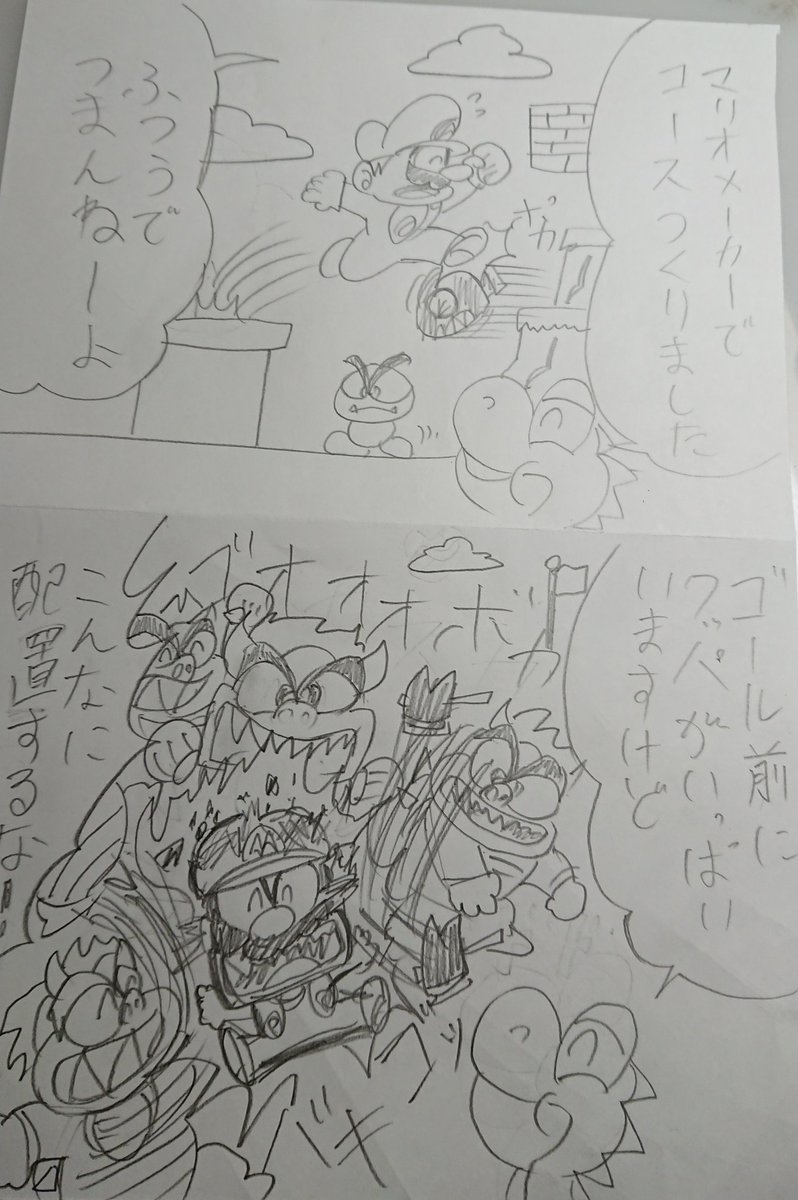 マリオメーカーで
コースつくりました
ポカ
ふつうで
つまんねーよ
ゴール前に
クッパがいっぱい
いますけど
ボカ
こんなに
配置するなー
バキ